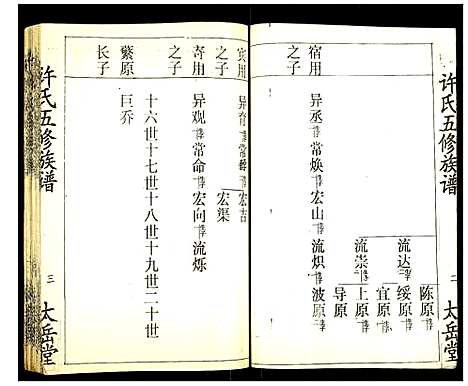 许氏五修族谱
三
太岳堂
宿用
异丞 传 常焕 传 宏山 传 流炽 传 波原
流崇 传 导原
上原
流达 传 宜原
绥原
陈原
宾用
异育 传 常 传 宏吉
宏渠
之子
寄用
异观 传 常命 传 宏向 传 流烁
之子
十六世十七世十八世十九世二十世
繁原
巨乔
长子
许氏五修族谱
三
太岳堂